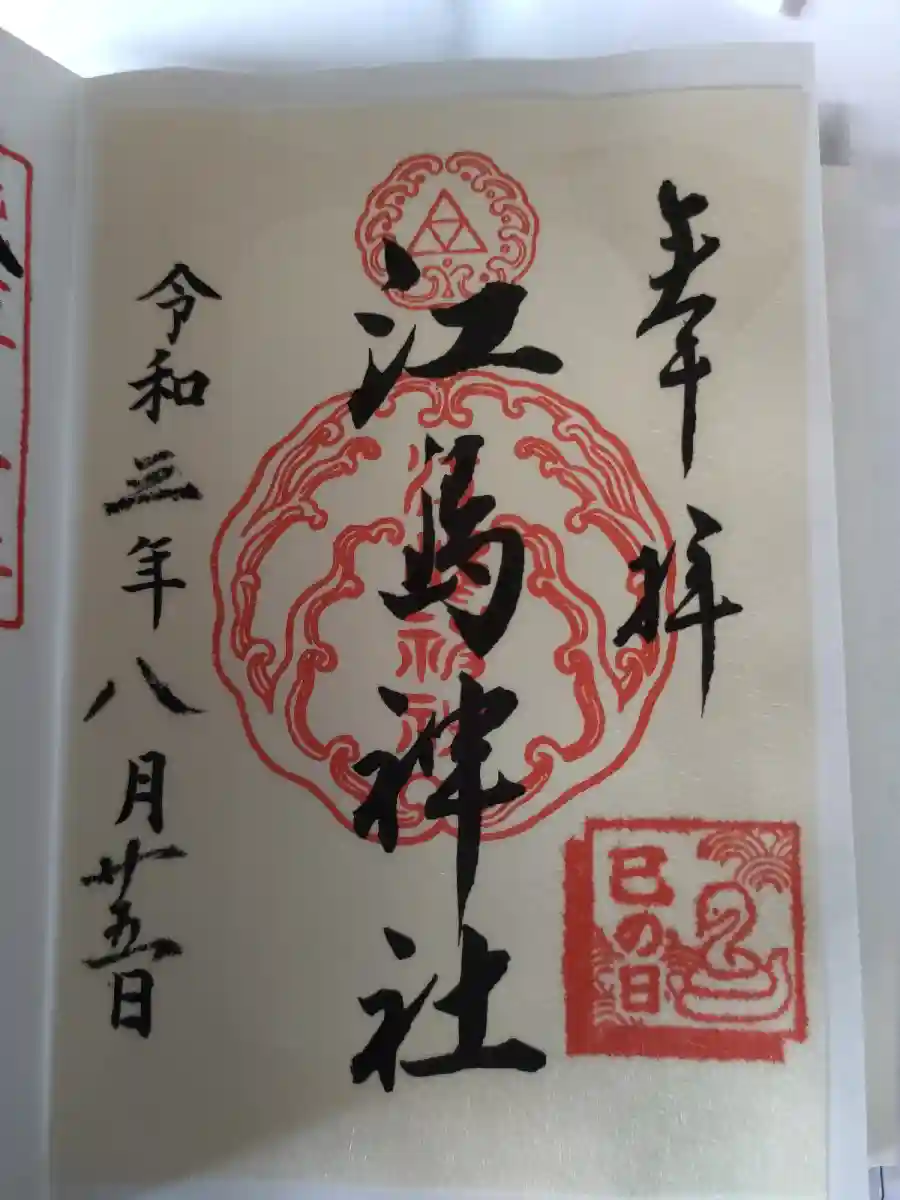 奉拝
江島神社
巳の日
令和三年八月廿五日